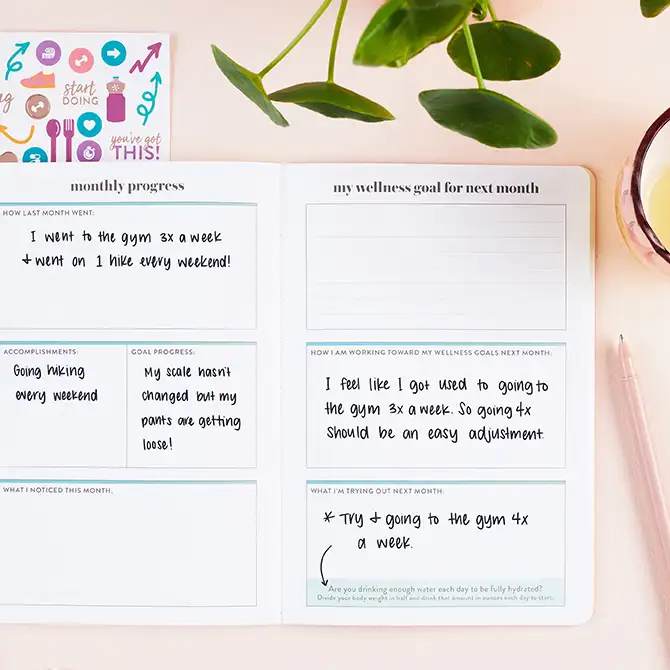 start
DOING
you've got
THIS!
monthly progress
HOW LAST MONTH WENT:
I went to the gym 3x a week
+ went on 1 hike every weekend!
ACCOMPLISHMENTS:
Going hiking
every weekend
GOAL PROGRESS:
My scale hasn't
changed but my
pants are getting
loose!
WHAT I NOTICED THIS MONTH:
my wellness goal for next month
HOW I AM WORKING TOWARD MY WELLNESS GOALS NEXT MONTH:
I feel like I got used to going to
the gym 3x a week. So going 4x
should be an easy adjustment.
WHAT I'M TRYING OUT NEXT MONTH:
* Try + going to the gym 4x
a week.
Are you drinking enough water each day to be fully hydrated?
Divide your body weight in half and drink that amount in ounces each day to start.